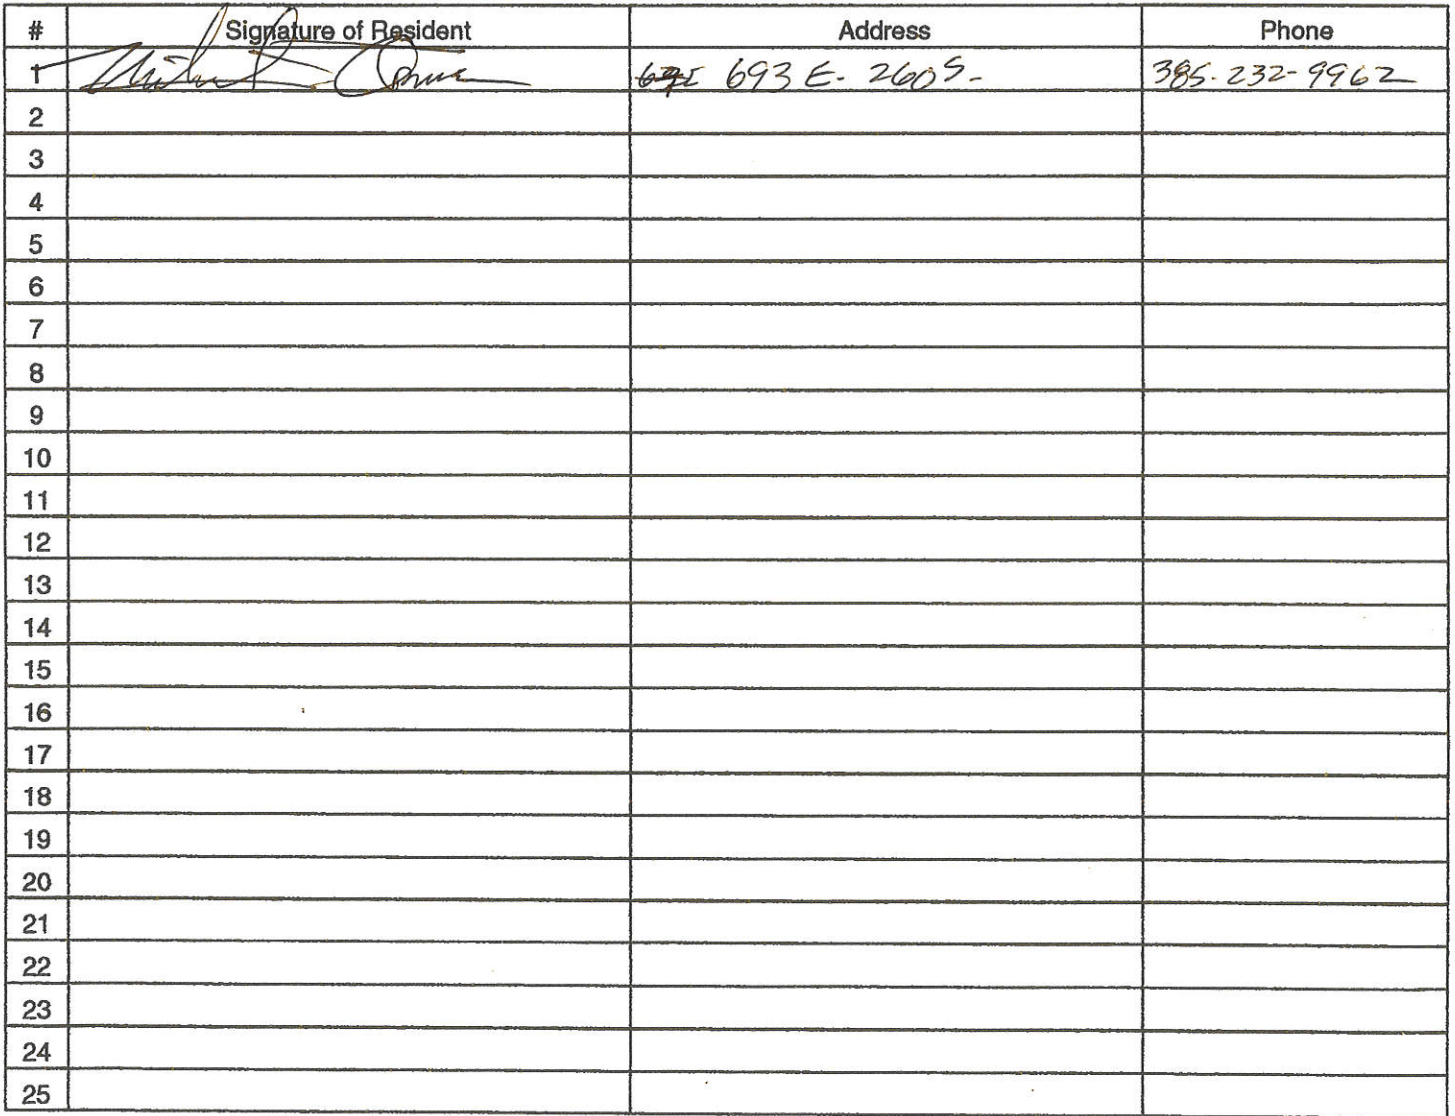 # Signature of Resident Address Phone
1 693 E. 260 S. 385-232-9962
2
3
4
5
6
7
8
9
10
11
12
13
14
15
16
17
18
19
20
21
22
23
24
25